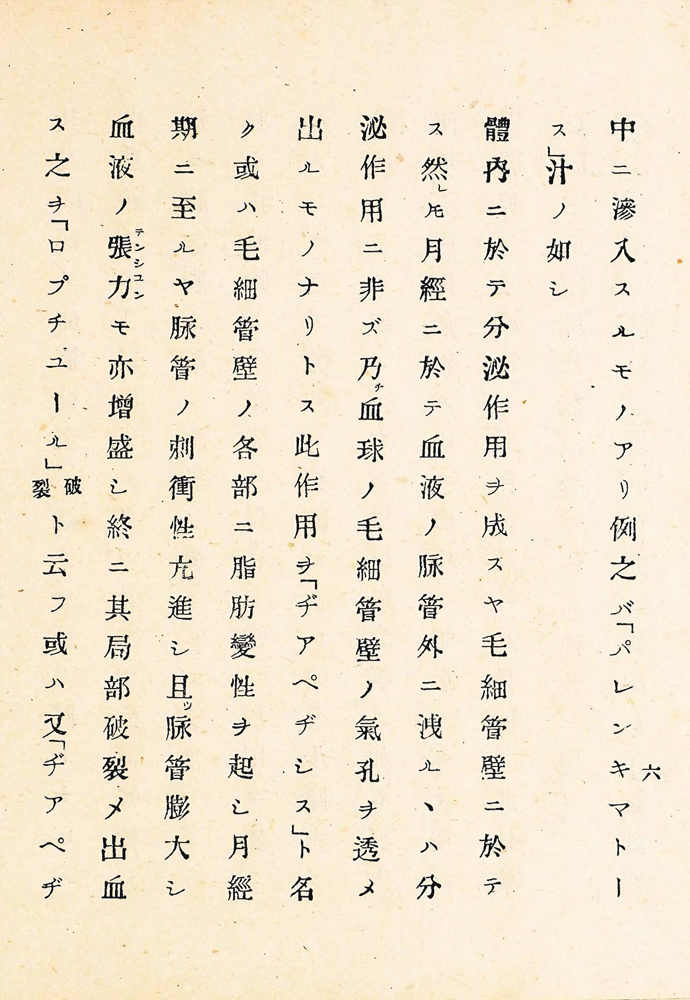 中ニ滲入スルモノアリ例之バ「パレンキマトー
ス」汁ノ如シ
體內ニ於テ分泌作用ヲ成スヤ毛細管壁ニ於テ
ス然レ𪜈月經ニ於テ血液ノ脉管外ニ洩ルヽハ分
泌作用ニ非ズ乃チ血球ノ毛細管壁ノ氣孔ヲ透メ
出ルモノナリトス此作用ヲ「ヂアペヂシス」ト名
ク或ハ毛細管壁ノ各部ニ脂肪變性ヲ起シ月經
期ニ至ルヤ脉管ノ刺衝性亢進シ且ツ脉管膨大シ
血液ノ張力テンシユンモ亦增盛シ終ニ其局部破裂メ出血
ス之ヲ「ロプチユール」破裂ト云フ或ハ又「ヂアペヂ
六